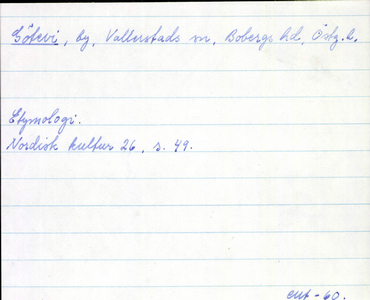 Götevi, by, Vallerstads sn, Bobergs hd, Östg. l.
Etymologi.
Nordisk kultur 26, s. 49.
-60.